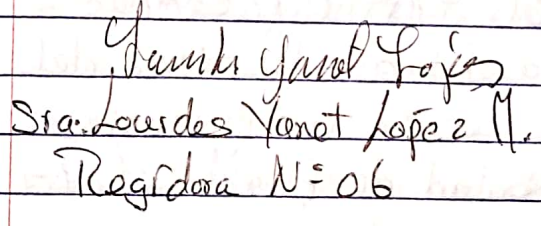 Yanet López
Sra. Lourdes Yanet Lopez M.
Regidora N= 06